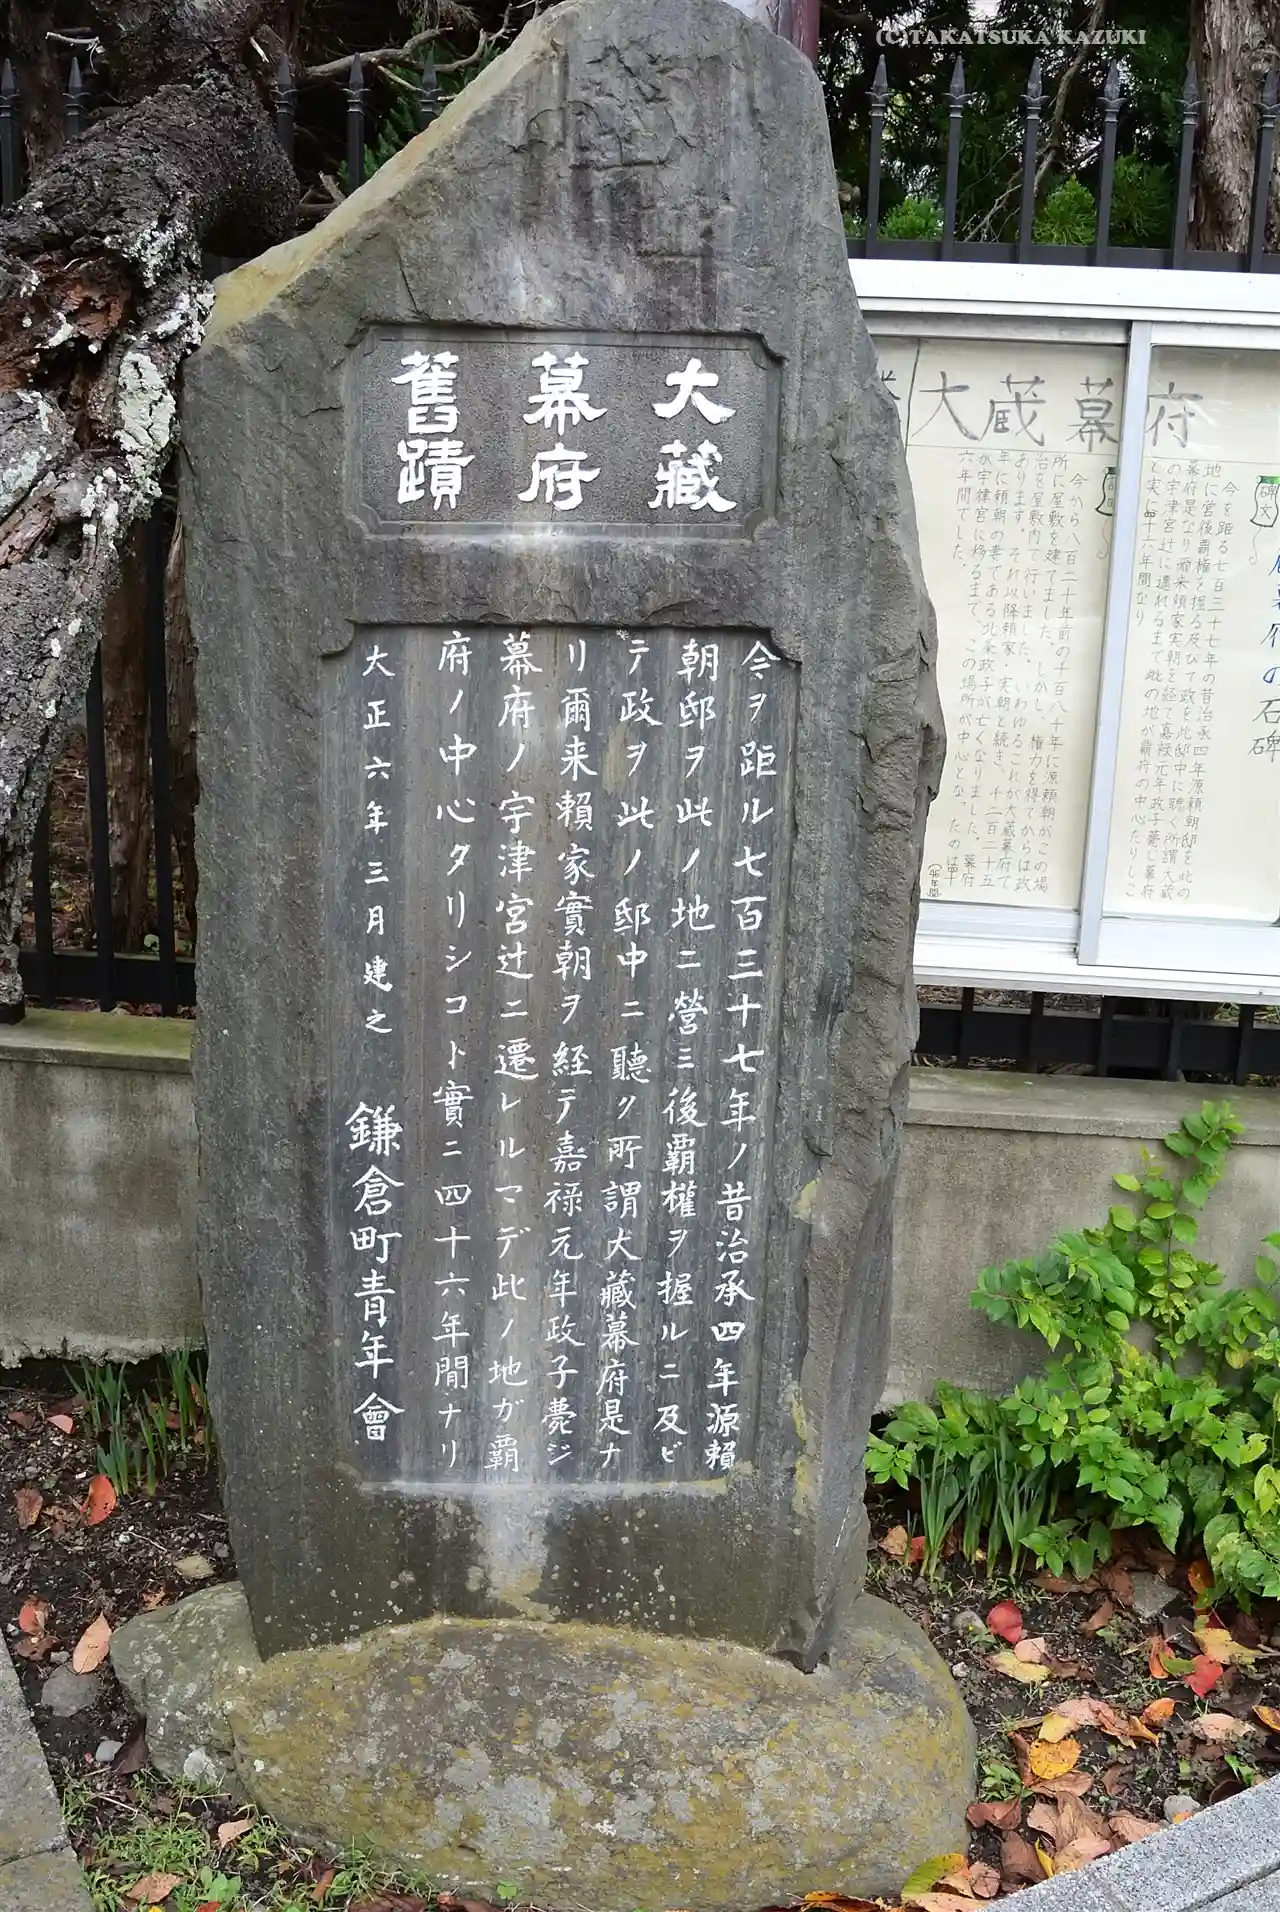 (C)TAKATSUKA KAZUKI
大藏
幕府
舊蹟
今ヲ距ル七百三十七年ノ昔治承四年源頼
朝邸ヲ此ノ地ニ営ミ後覇權ヲ握ルニ及ビ
テ政ヲ此ノ邸中ニ聽ク所謂大藏幕府是ナ
リ爾来頼家實朝ヲ経テ嘉禄元年政子薨ジ
幕府ノ宇津宮辻ニ遷レルマデ此ノ地ガ覇
府ノ中心タリシコト實ニ四十六年間ナリ
大正六年三月建之 鎌倉町青年會
大蔵幕府
府の石碑
碑文
今を距る七百三十七年の昔治承四年源頼朝邸を此の
地に営後覇権を握る及びて政を此邸中に聴く所謂大蔵
幕府是なり爾来頼家実朝を経て嘉禄元年政子薨じ幕府
の宇津宮辻に遷れるまで此の地が覇府の中心たりしこ
と実に四十六年間なり
今から八百二十年前の千百八十年に源頼朝がこの場
所に屋敷を建てました。しかし、権力を得てからは政
治を屋敷内で行いました。いわゆるこれが大蔵幕府で
あります。それ以降頼家・実朝と続き、千二百二十五
年に頼朝の妻である北条政子が亡くなりました。幕府
が宇津宮に移るまで、この場所が中心となったのは四十
六年間でした。